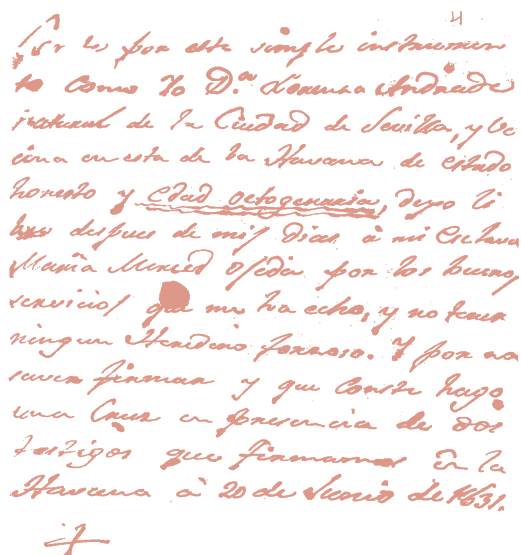 4
Sea por este simple instrumen
to como Yo D.ª Lorenza Andrade
natural de la Ciudad de Sevilla, y Ve
cina en esta de la Havana de estado
honesto y edad octogenaria, dejo li
bre despues de mis dias à mi esclava
Maria Merced Ojeda por los buenos
servicios que me ha echo, y no tener
ningun Heredero forzoso. Y por no
saver firmar y que conste hago
una Cruz en presencia de dos
testigos que firmamos en la
Havana à 20 de Junio de 1631.